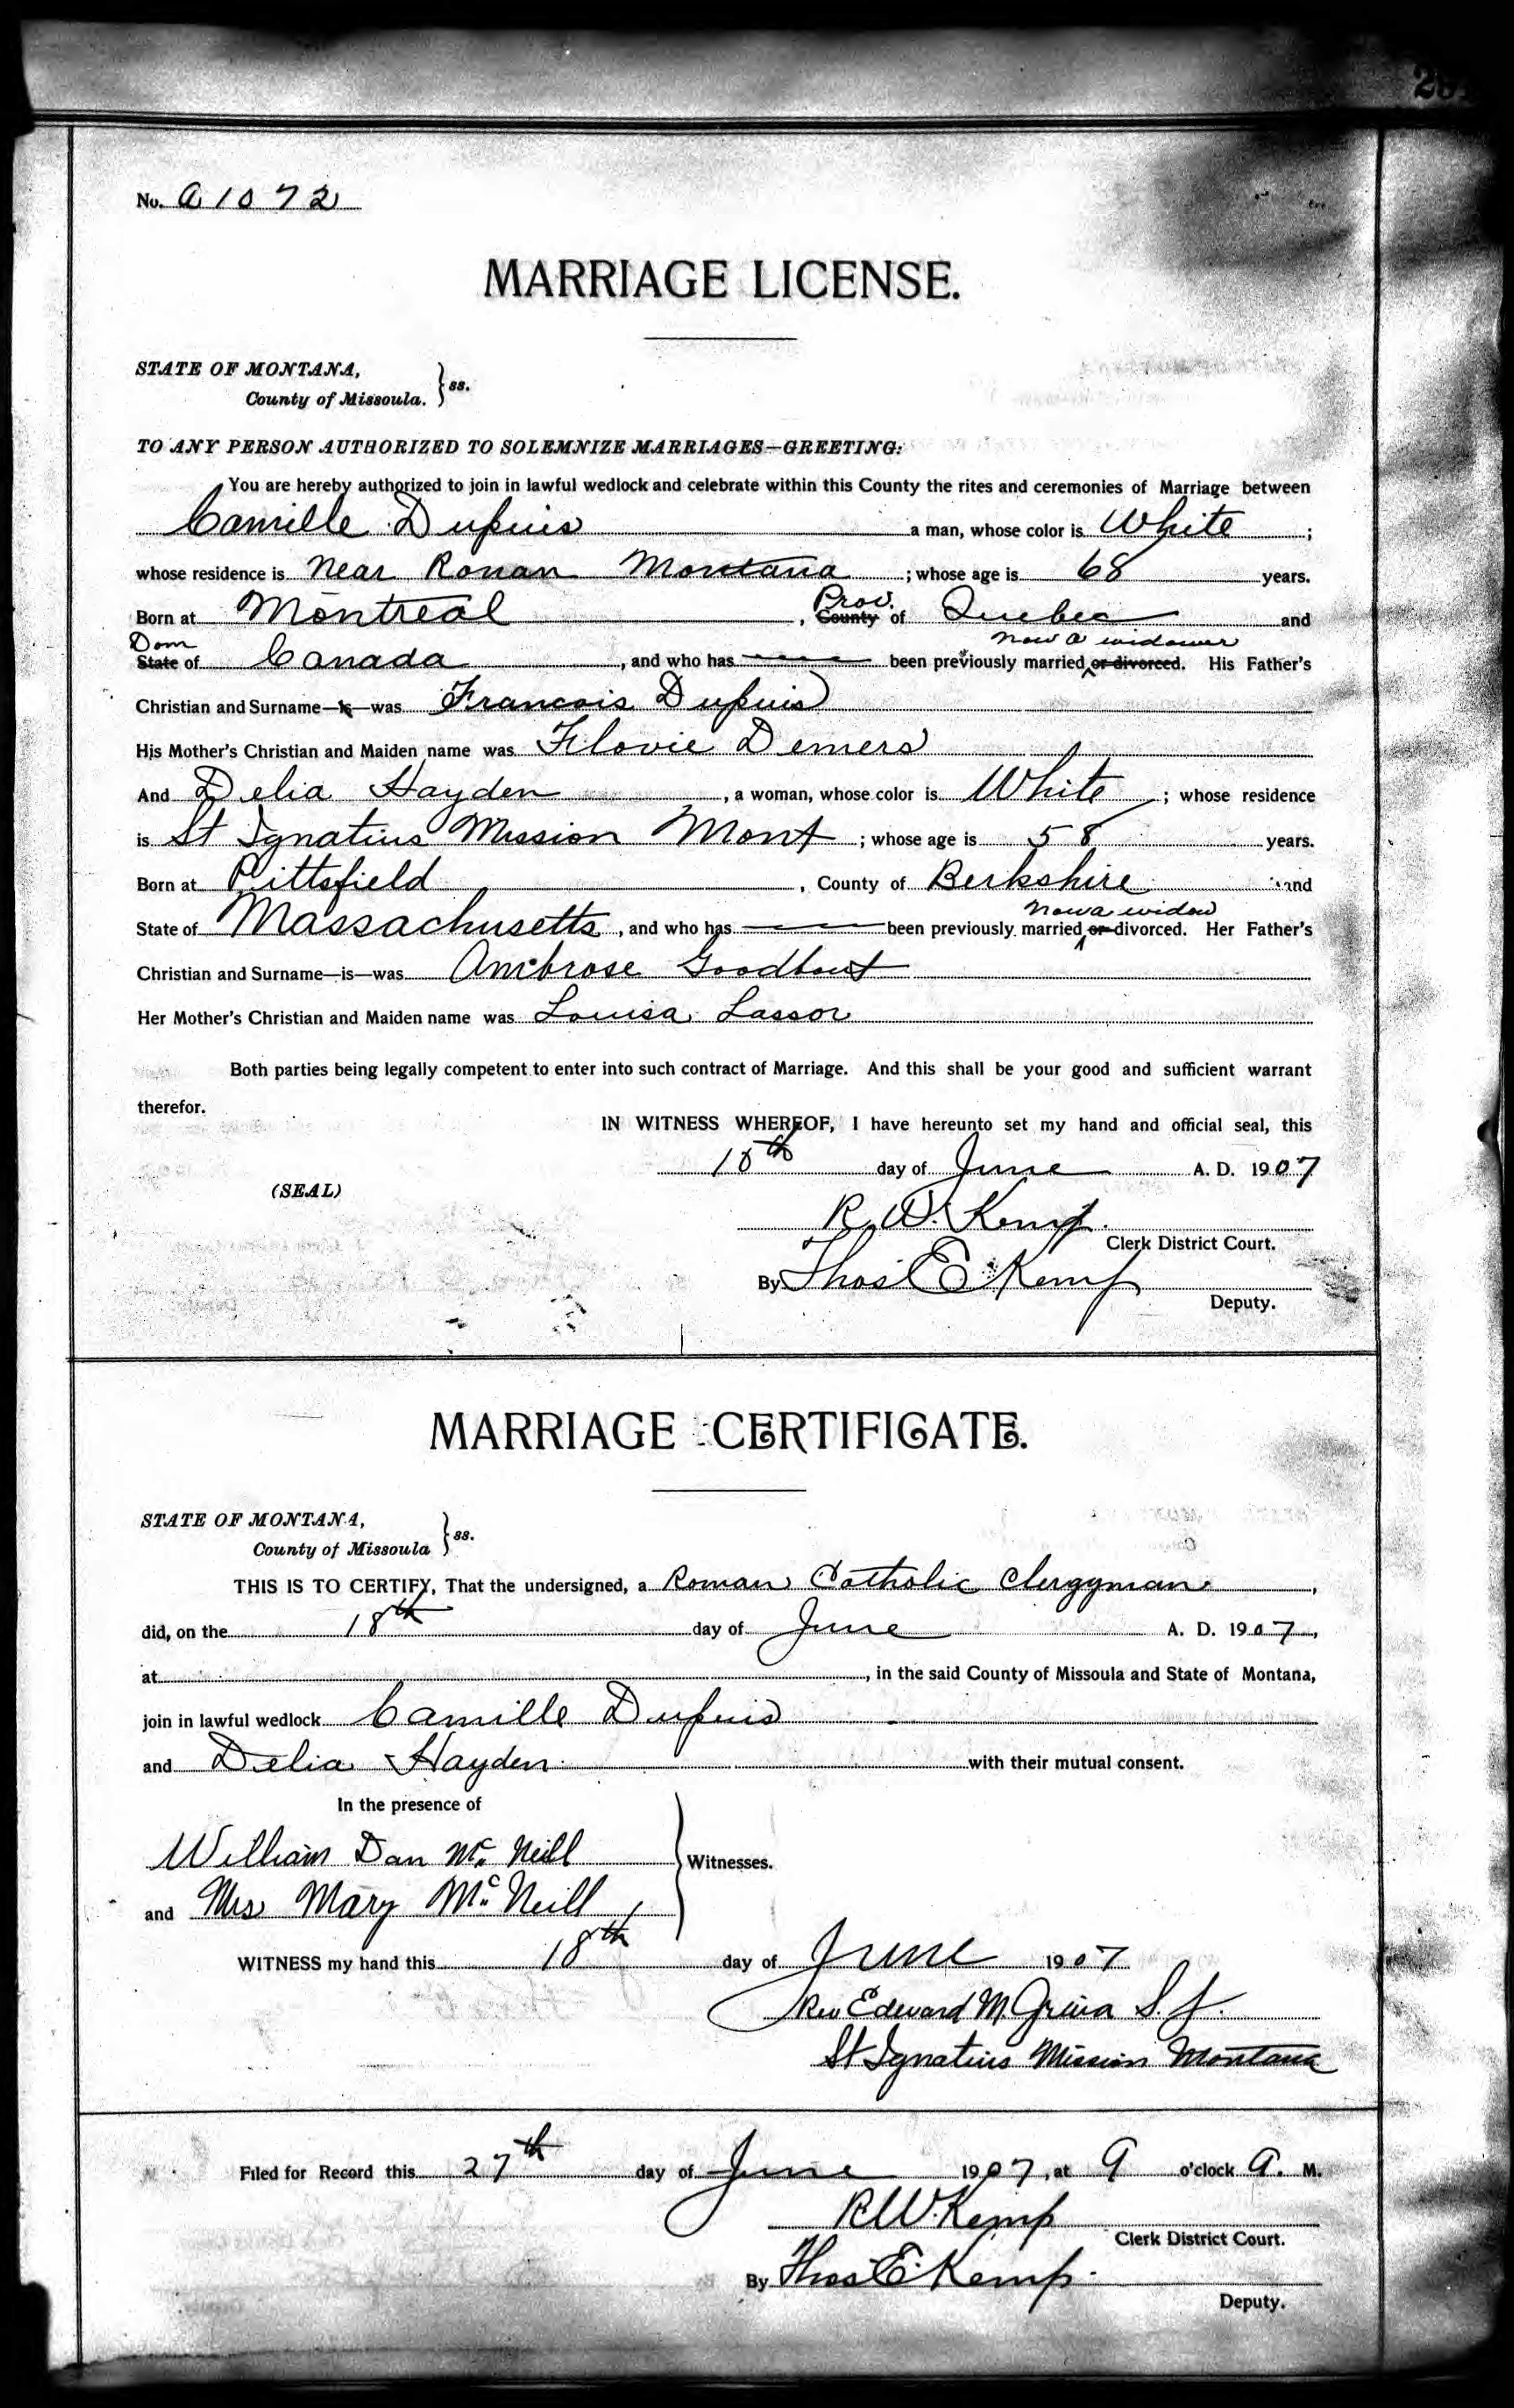 No. A 1072
MARRIAGE LICENSE.
STATE OF MONTANA,
County of Missoula. } ss.
TO ANY PERSON AUTHORIZED TO SOLEMNIZE MARRIAGES—GREETING:
You are hereby authorized to join in lawful wedlock and celebrate within this County the rites and ceremonies of Marriage between
Camille Dupuis a man, whose color is White ;
whose residence is Near Ronan Montana ; whose age is 68 years.
Born at Montreal , Prov. County of Quebec and
Dom State of Canada , and who has been previously married now a widower or divorced. His Father's
Christian and Surname—is—was Francois Dupuis
His Mother's Christian and Maiden name was Flovie Demers
And Delia Hayden , a woman, whose color is White ; whose residence
is St Ignatius Mission Mont ; whose age is 58 years.
Born at Pittsfield , County of Berkshire and
State of Massachusetts , and who has been previously married now a widow or divorced. Her Father's
Christian and Surname—is—was Ambrose Goodbout
Her Mother's Christian and Maiden name was Louisa Lassor
Both parties being legally competent to enter into such contract of Marriage. And this shall be your good and sufficient warrant
therefor.
IN WITNESS WHEREOF, I have hereunto set my hand and official seal, this
day of June A. D. 1907
(SEAL)
R. W. Kemp.
Clerk District Court.
By Thos E Kemp
Deputy.
MARRIAGE CERTIFICATE.
STATE OF MONTANA,
County of Missoula } ss.
THIS IS TO CERTIFY, That the undersigned, a Roman Catholic Clergyman ,
did, on the 18th day of June A. D. 1907,
at , in the said County of Missoula and State of Montana,
join in lawful wedlock Camille Dupuis
and Delia Hayden with their mutual consent.
In the presence of
William Dan McNeill
Witnesses.
and Mrs Mary McNeill
WITNESS my hand this 18th day of June 1907
Rev Edward M. Griva S. J.
St Ignatius Mission Montana
Filed for Record this 27th day of June 1907, at 9 o'clock A. M.
R W. Kemp
Clerk District Court.
By Thos E. Kemp.
Deputy.